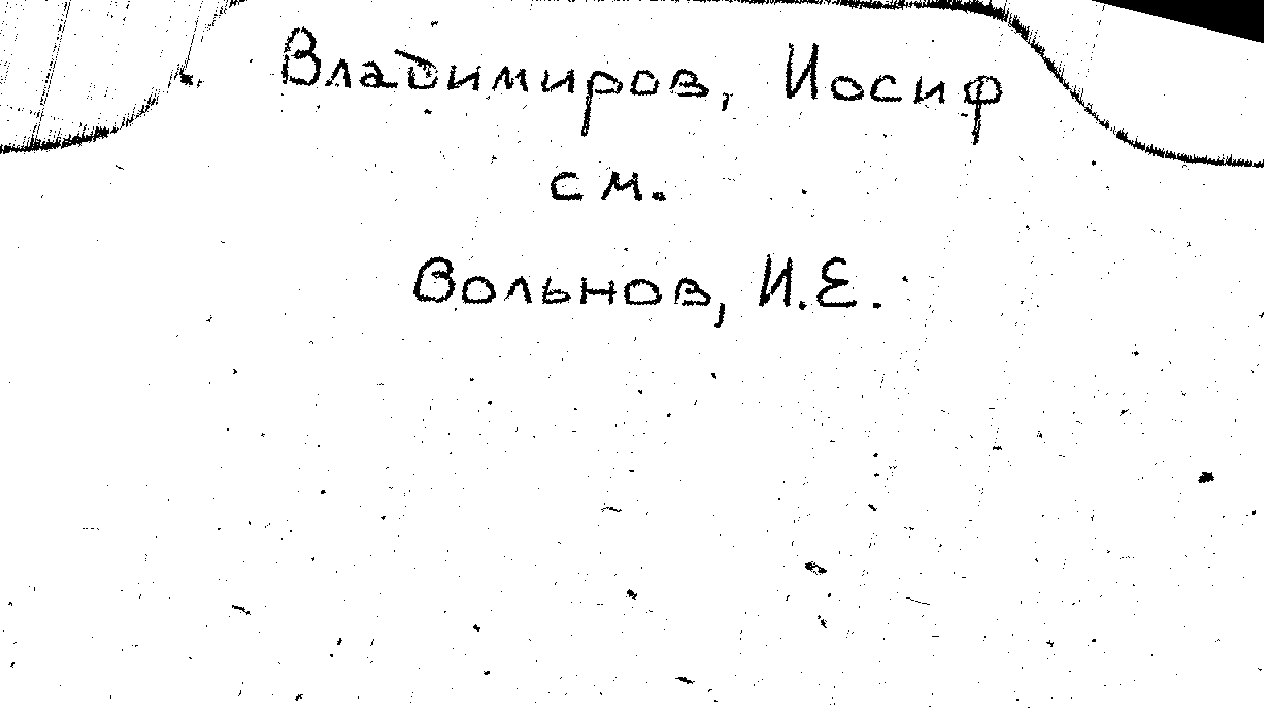 Владимиров, Иосиф
см.
Вольнов, И.Е.